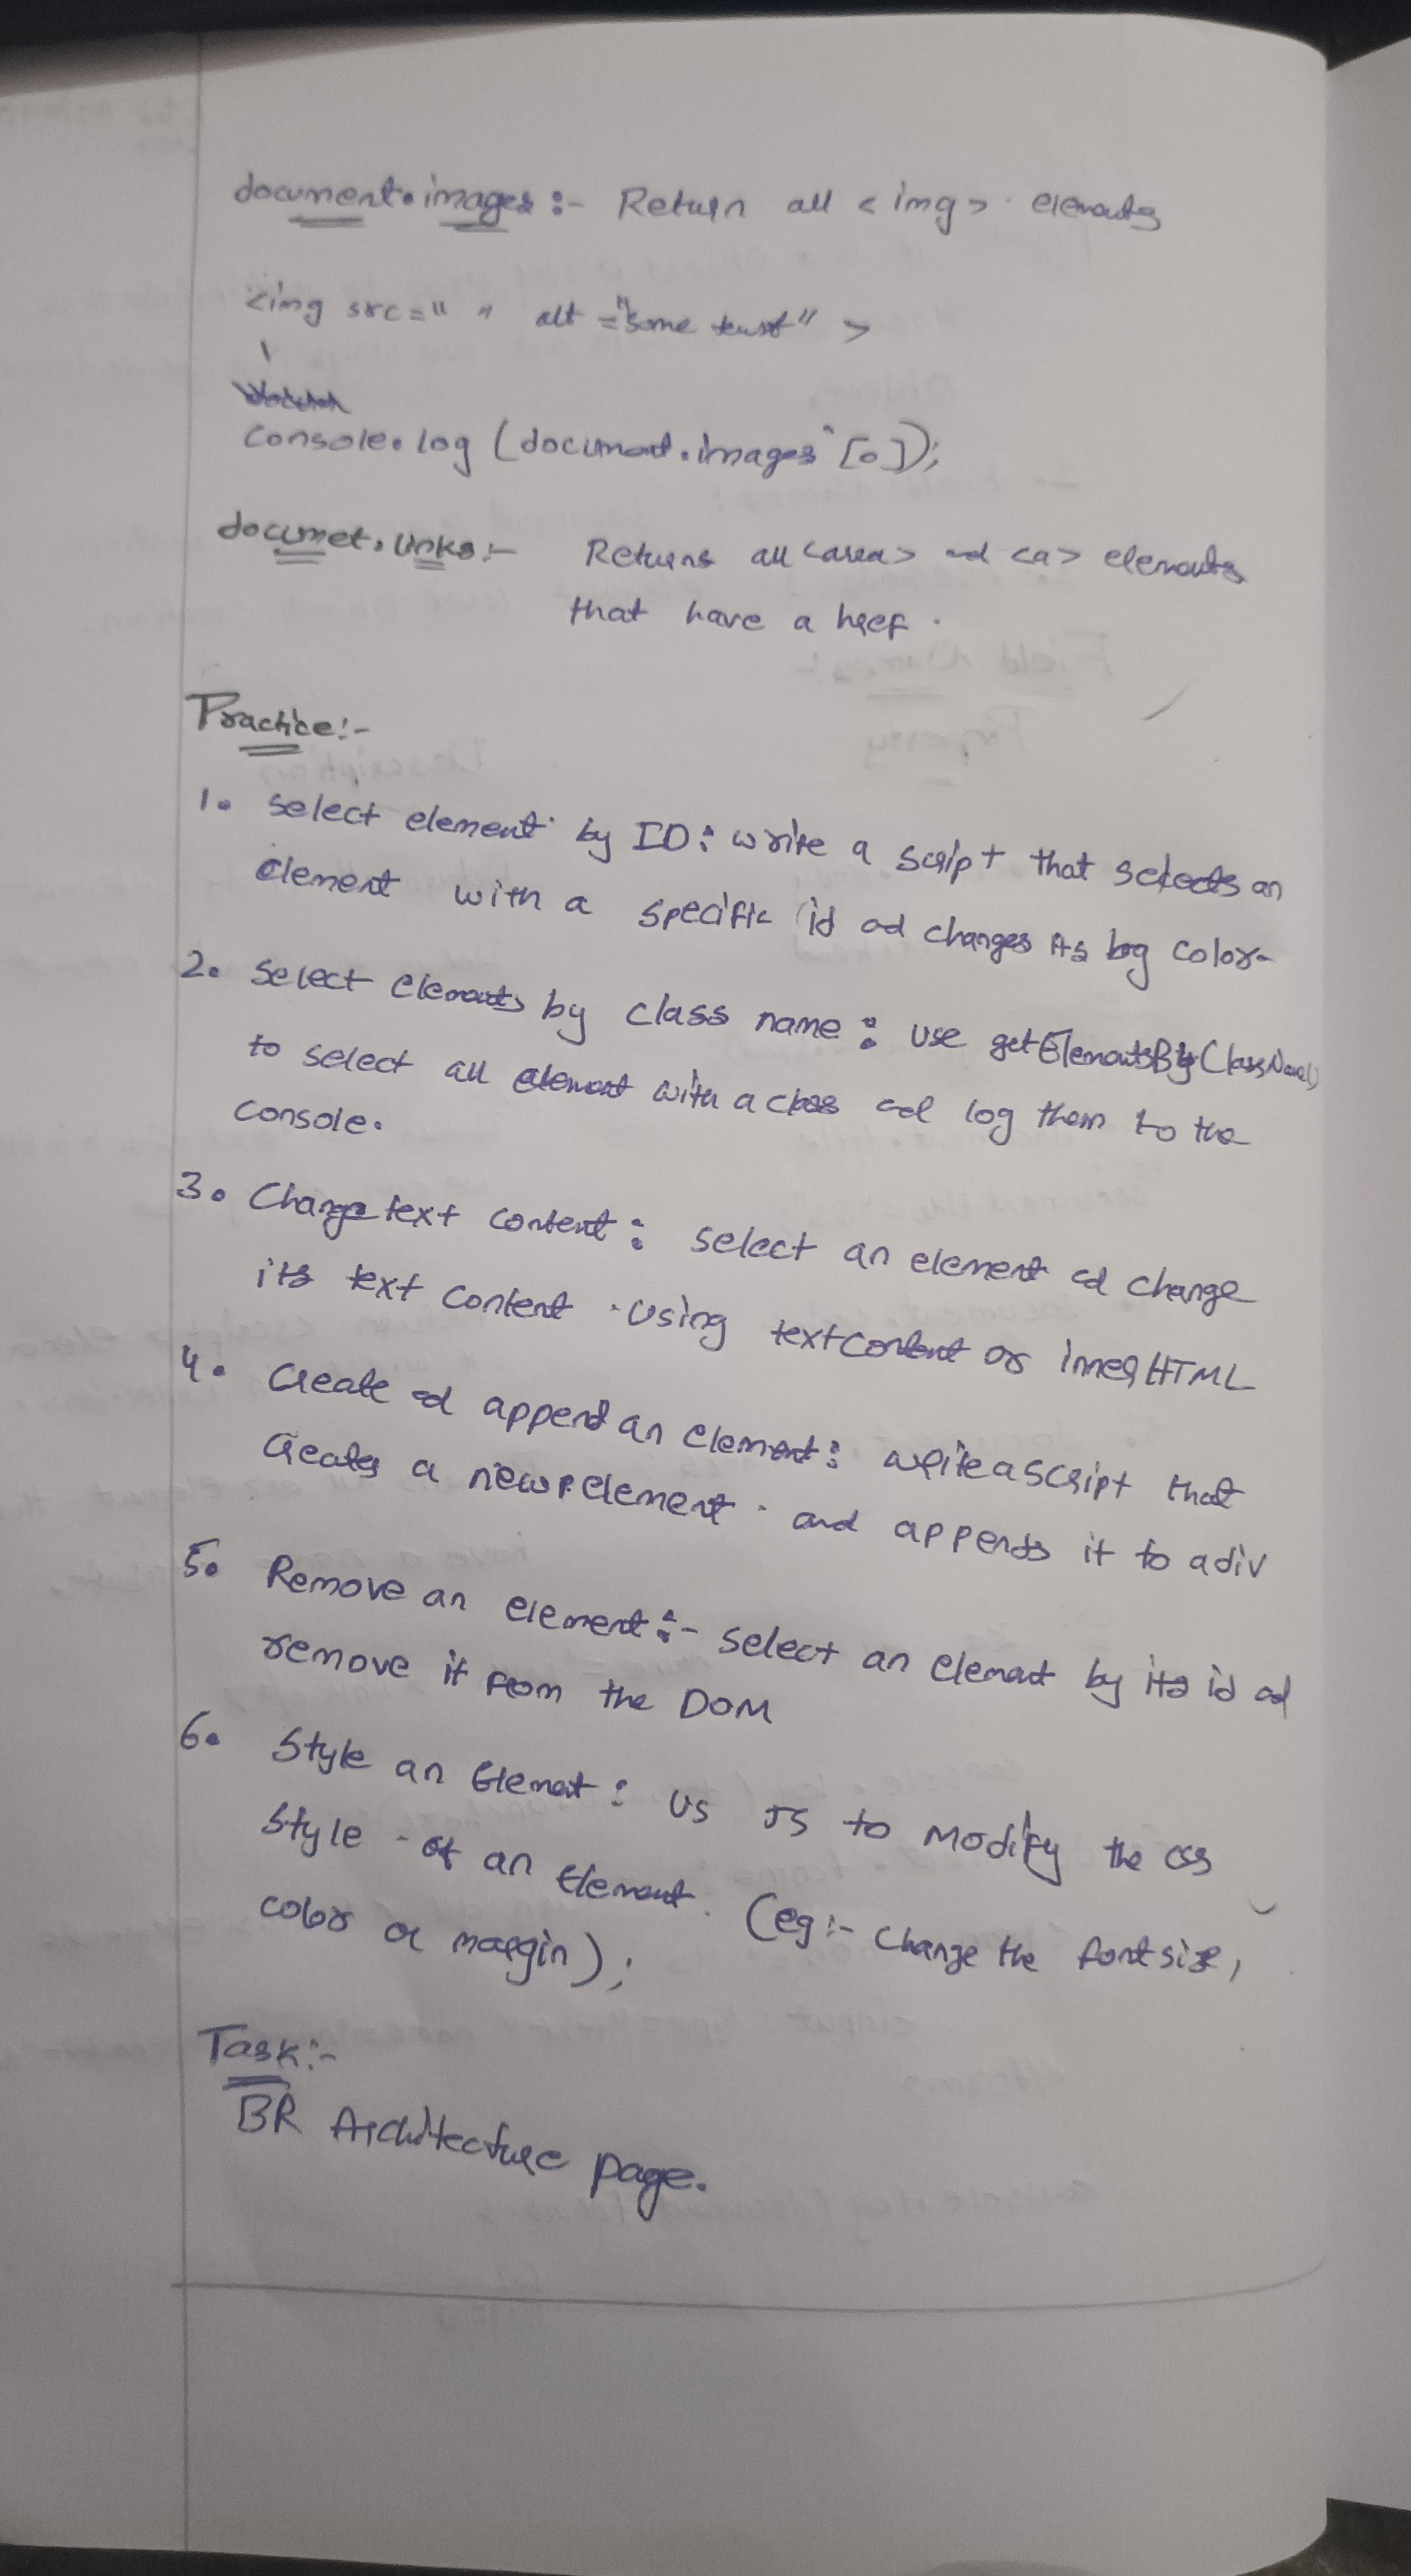 document.images :- Return all <img> elements
<img src=" " alt ="some text" >
console.log (document.images [0]);
documet.links :- Returns all <area> and <a> elements
that have a href.
Practice:-
1. Select element by ID: write a script that selects an
element with a specific id ad changes its bg color.
2. Select elements by class name: use getElementsByClassName()
to select all element with a class ad log them to the
console.
3. Change text content: select an element ad change
its text content using textContent or innerHTML
4. Create ad append an element: write a script that
creates a new p element and appends it to a div
5. Remove an element:- select an element by its id ad
remove it from the DOM
6. Style an Element: Us JS to modify the css
style of an Element. (eg:- change the font size,
color or margin);
Task:-
BR Architecture page.